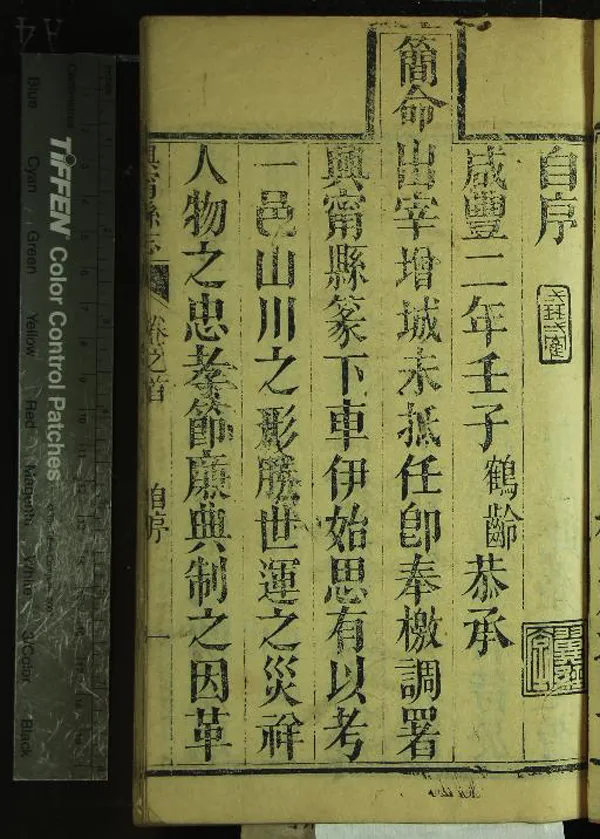 自序
咸豐二年壬子鶴齡恭承
簡命出宰增城未抵任卽奉檄調署
興甯縣篆下車伊始思有以考
一邑山川之形勝世運之災祥
人物之忠孝節廉典制之因革
興甯縣志 卷之首 自序 一
TIFFEN® Color Control Patches
Blue Cyan Green Yellow Red Magenta White 3/Color Black